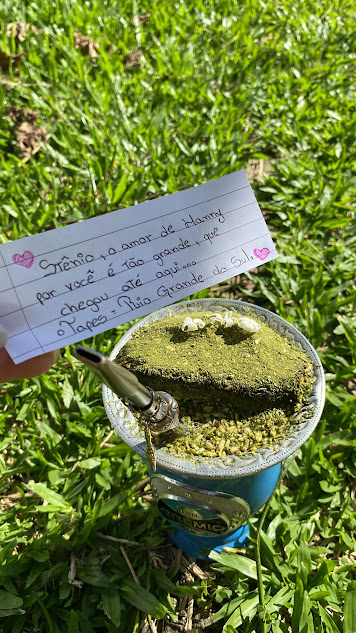 Stênio, o amor de Hanny
por você é tão grande, que
chegou até aqui...
Tapes - Rio Grande do Sul.